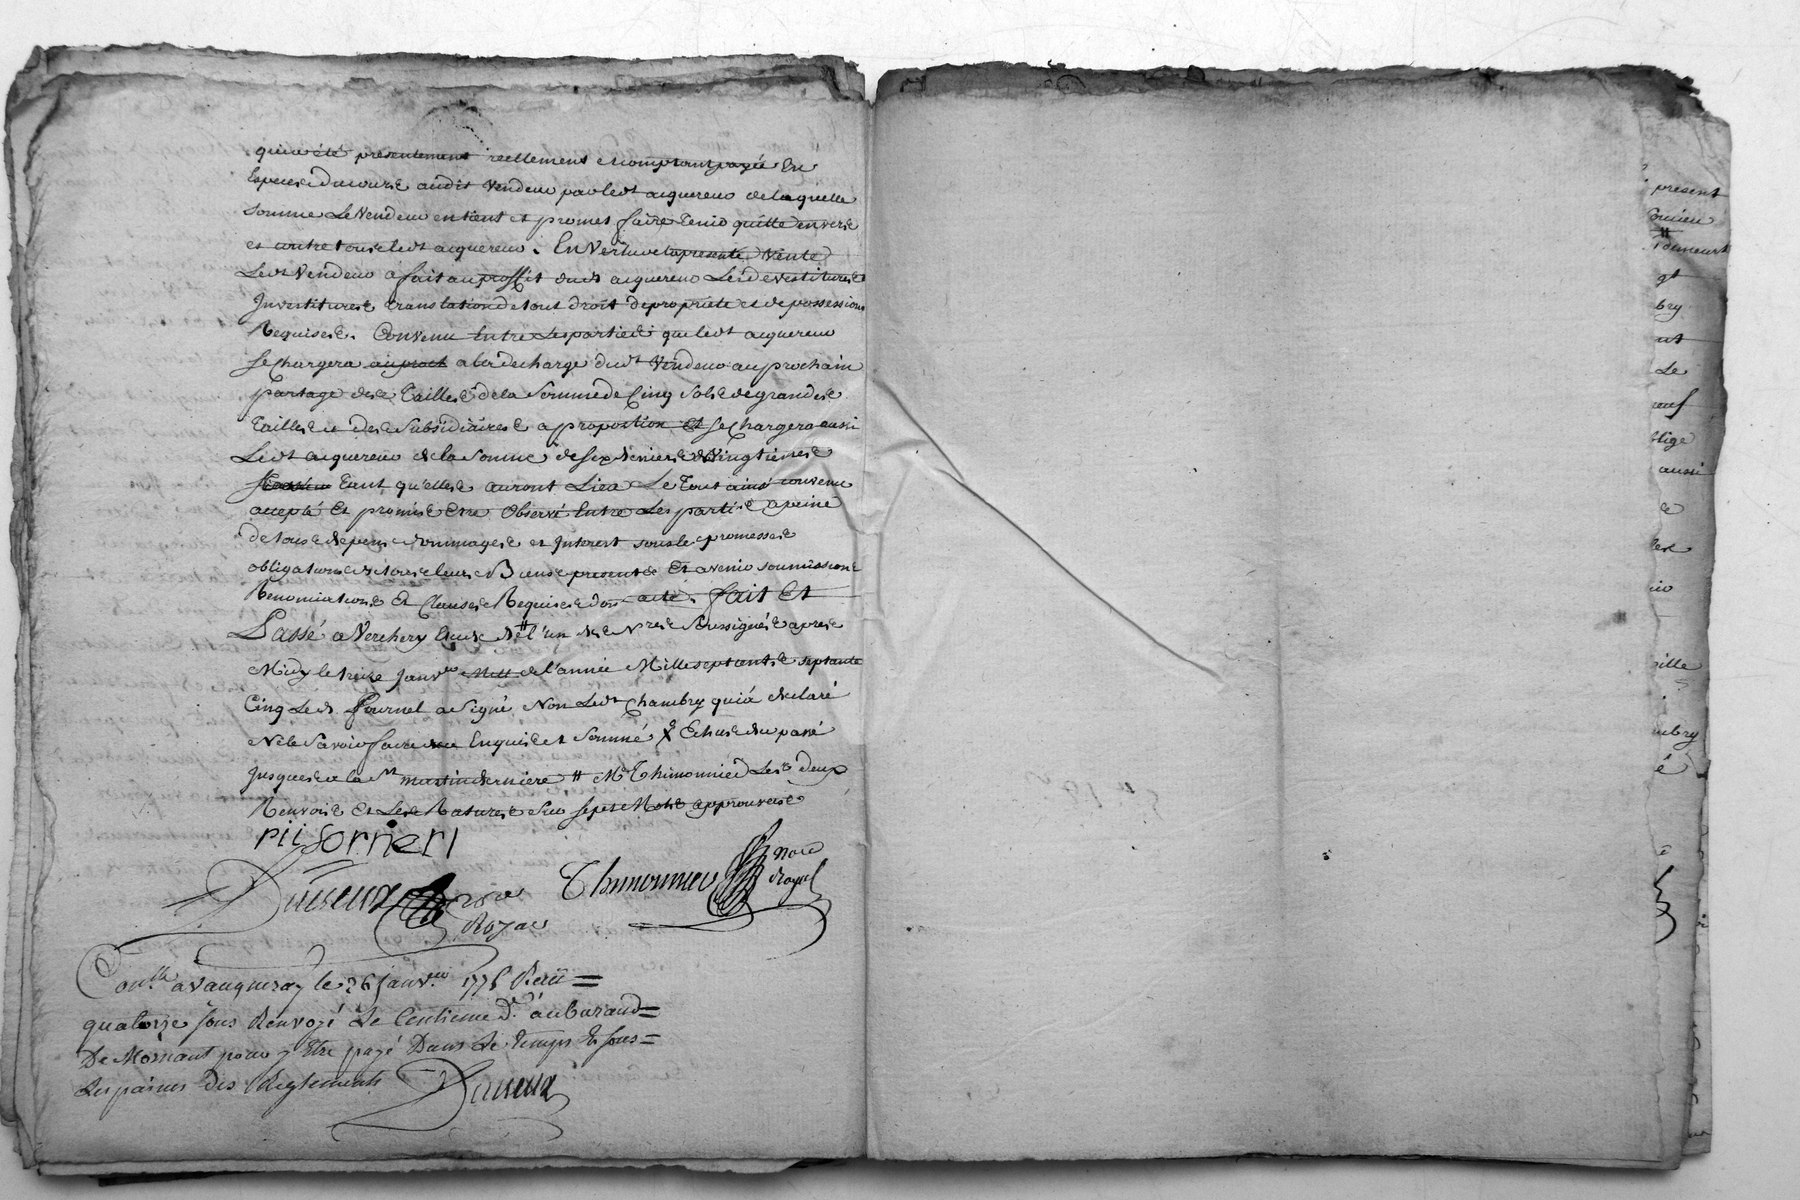 qui a été presentement reellement et comptant payée En
Especes du cours audit vendeur par ledt acquereur de laquelle
somme Le Vendeur content et promet faire tenir quitte envers
et contre tous ledt acquereur. En Vertu de la presente Vente
Ledt Vendeur a fait au proffit dudt acquereur Les devestitures
Investitures translation de tout droit de propriete et de possession
Requises. Convenu Entre Les parties que ledt acquereur
se Chargera a la decharge dudt Vendeur au prochain
partage des Tailles de la Somme de Cinq Sols de grandes
tailles et des Subsidiaires a proportion Et se Chargera aussi
Ledt acquereur de la Somme de six deniers de Vingtiemes
tant qu'elles auront Lieu Le Tout ainsi convenu
accepté Et promis Etre Observé Entre Les parties a peine
de tous depens dommages et Interest sous les promesses
obligations de tous leurs Biens presents Et avenir soumissions
Renonciations Et Clauses Requises dont acte. fait Et
Passé a Verchery Etude de # l'un des nres Soussignés apres
Midy le treize Janvier de l'année Mille sept cents septante
Cinq Ledt fournel a Signé Non Ledt Chambry qui a declaré
Ne le Savoir faire Enquis et Sommé Echus du passé
Jusques a la St martin derniere # Me Thimonnier Les deux
Renvois Et Les Ratures Sur sept Mots approuvés
pii fornerl
Duvieux nore Thimonnier nore
Royal Royal
Conllé a vaugneray le 26 janvier 1775 Reçu =
quatorze sous Renvoyé Le Centieme d. au bureau =
De Mornant pour y Etre payé Dans Le temps & sous =
Les peines des Reglements Duvieux
present
#
gt
bry
Le
aussi